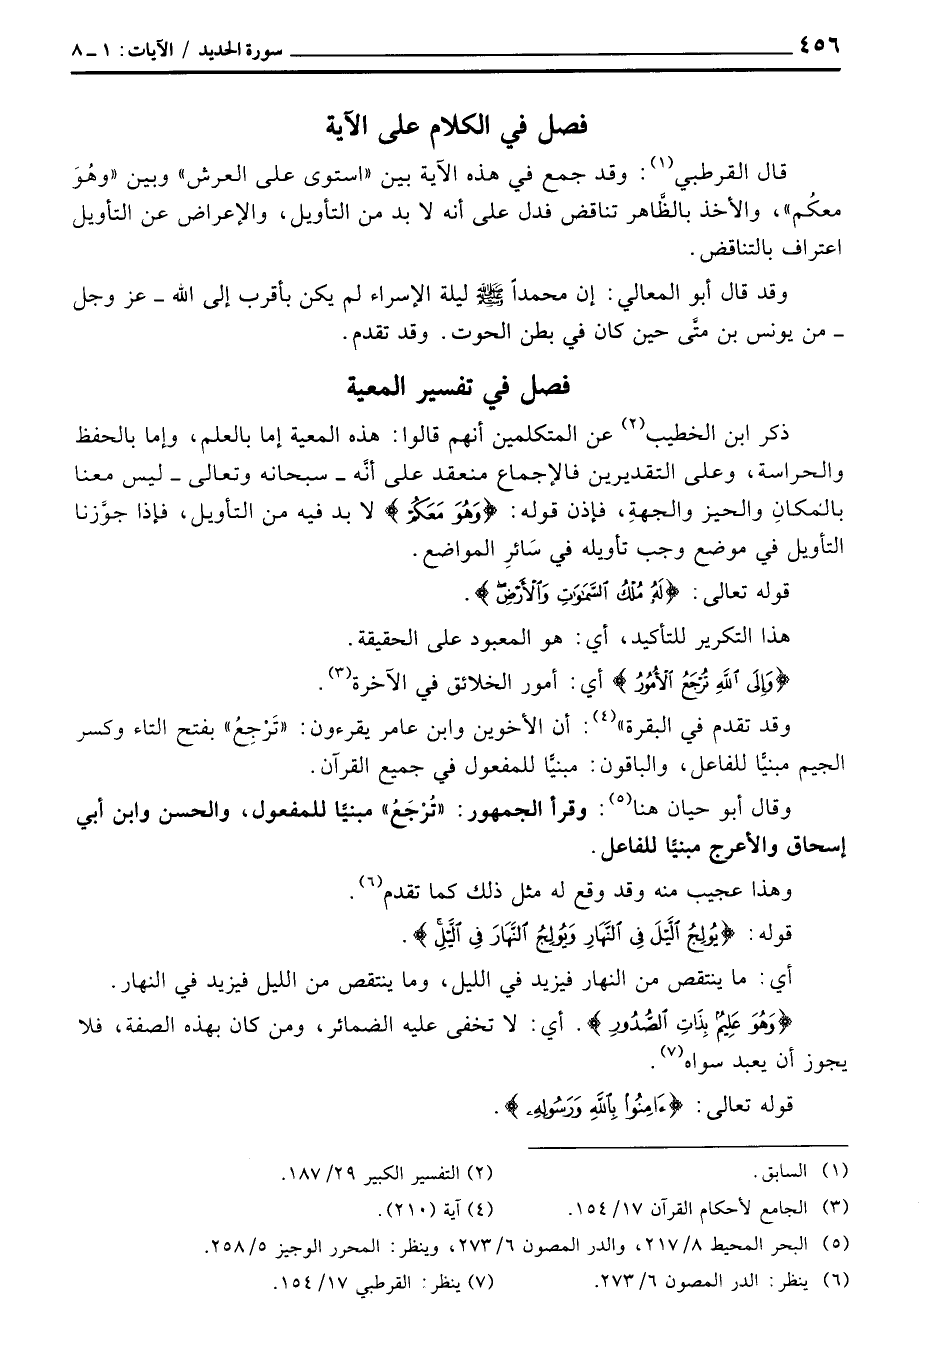 ٤٥٦ ــــــــــــــــــــ سورة الحديد / الآيات: ١ ـ ٨
فصل في الكلام على الآية
قال القرطبي(١): وقد جمع في هذه الآية بين «استوى على العرش» وبين «وهُوَ
معكُم»، والأخذ بالظَّاهر تناقض فدل على أنه لا بد من التأويل، والإعراض عن التأويل
اعتراف بالتناقض.
وقد قال أبو المعالي: إن محمداً ﷺ ليلة الإسراء لم يكن بأقرب إلى الله ـ عز وجل
ـ من يونس بن متَّى حين كان في بطن الحوت. وقد تقدم.
فصل في تفسير المعية
ذكر ابن الخطيب(٢) عن المتكلمين أنهم قالوا: هذه المعية إما بالعلم، وإما بالحفظ
والحراسة، وعلى التقديرين فالإجماع منعقد على أنَّه ـ سبحانه وتعالى ـ ليس معنا
بالمكانِ والحيز والجهةِ، فإذن قوله: ﴿وَهُوَ مَعَكُمْ﴾ لا بد فيه من التأويل، فإذا جوَّزنا
التأويل في موضع وجب تأويله في سَائرِ المواضع.
قوله تعالى: ﴿لَهُ مُلْكُ السَّمَٰوَٰتِ وَٱلْأَرْضِۖ﴾.
هذا التكرير للتأكيد، أي: هو المعبود على الحقيقة.
﴿وَإِلَى ٱللَّهِ تُرْجَعُ ٱلْأُمُورُ﴾ أي: أمور الخلائق في الآخرة(٣).
وقد تقدم في البقرة»(٤): أن الأخوين وابن عامر يقرءون: «تَرْجِعُ» بفتح التاء وكسر
الجيم مبنيًّا للفاعل، والباقون: مبنيًّا للمفعول في جميع القرآن.
وقال أبو حيان هنا(٥): وقرأ الجمهور: «تُرْجَعُ» مبنيًّا للمفعول، والحسن وابن أبي
إسحاق والأعرج مبنيًّا للفاعل.
وهذا عجيب منه وقد وقع له مثل ذلك كما تقدم(٦).
قوله: ﴿يُولِجُ ٱلَّيْلَ فِى ٱلنَّهَارِ وَيُولِجُ ٱلنَّهَارَ فِى ٱلَّيْلِۚ﴾.
أي: ما ينتقص من النهار فيزيد في الليل، وما ينتقص من الليل فيزيد في النهار.
﴿وَهُوَ عَلِيمٌۢ بِذَاتِ ٱلصُّدُورِ﴾. أي: لا تخفى عليه الضمائر، ومن كان بهذه الصفة، فلا
يجوز أن يعبد سواه(٧).
قوله تعالى: ﴿ءَامِنُوا۟ بِٱللَّهِ وَرَسُولِهِۦ﴾.
(١) السابق.
(٢) التفسير الكبير ٢٩/ ١٨٧.
(٣) الجامع لأحكام القرآن ١٧/ ١٥٤.
(٤) آية (٢١٠).
(٥) البحر المحيط ٨/ ٢١٧، والدر المصون ٦/ ٢٧٣، وينظر: المحرر الوجيز ٥/ ٢٥٨.
(٦) ينظر: الدر المصون ٦/ ٢٧٣.
(٧) ينظر: القرطبي ١٧/ ١٥٤.